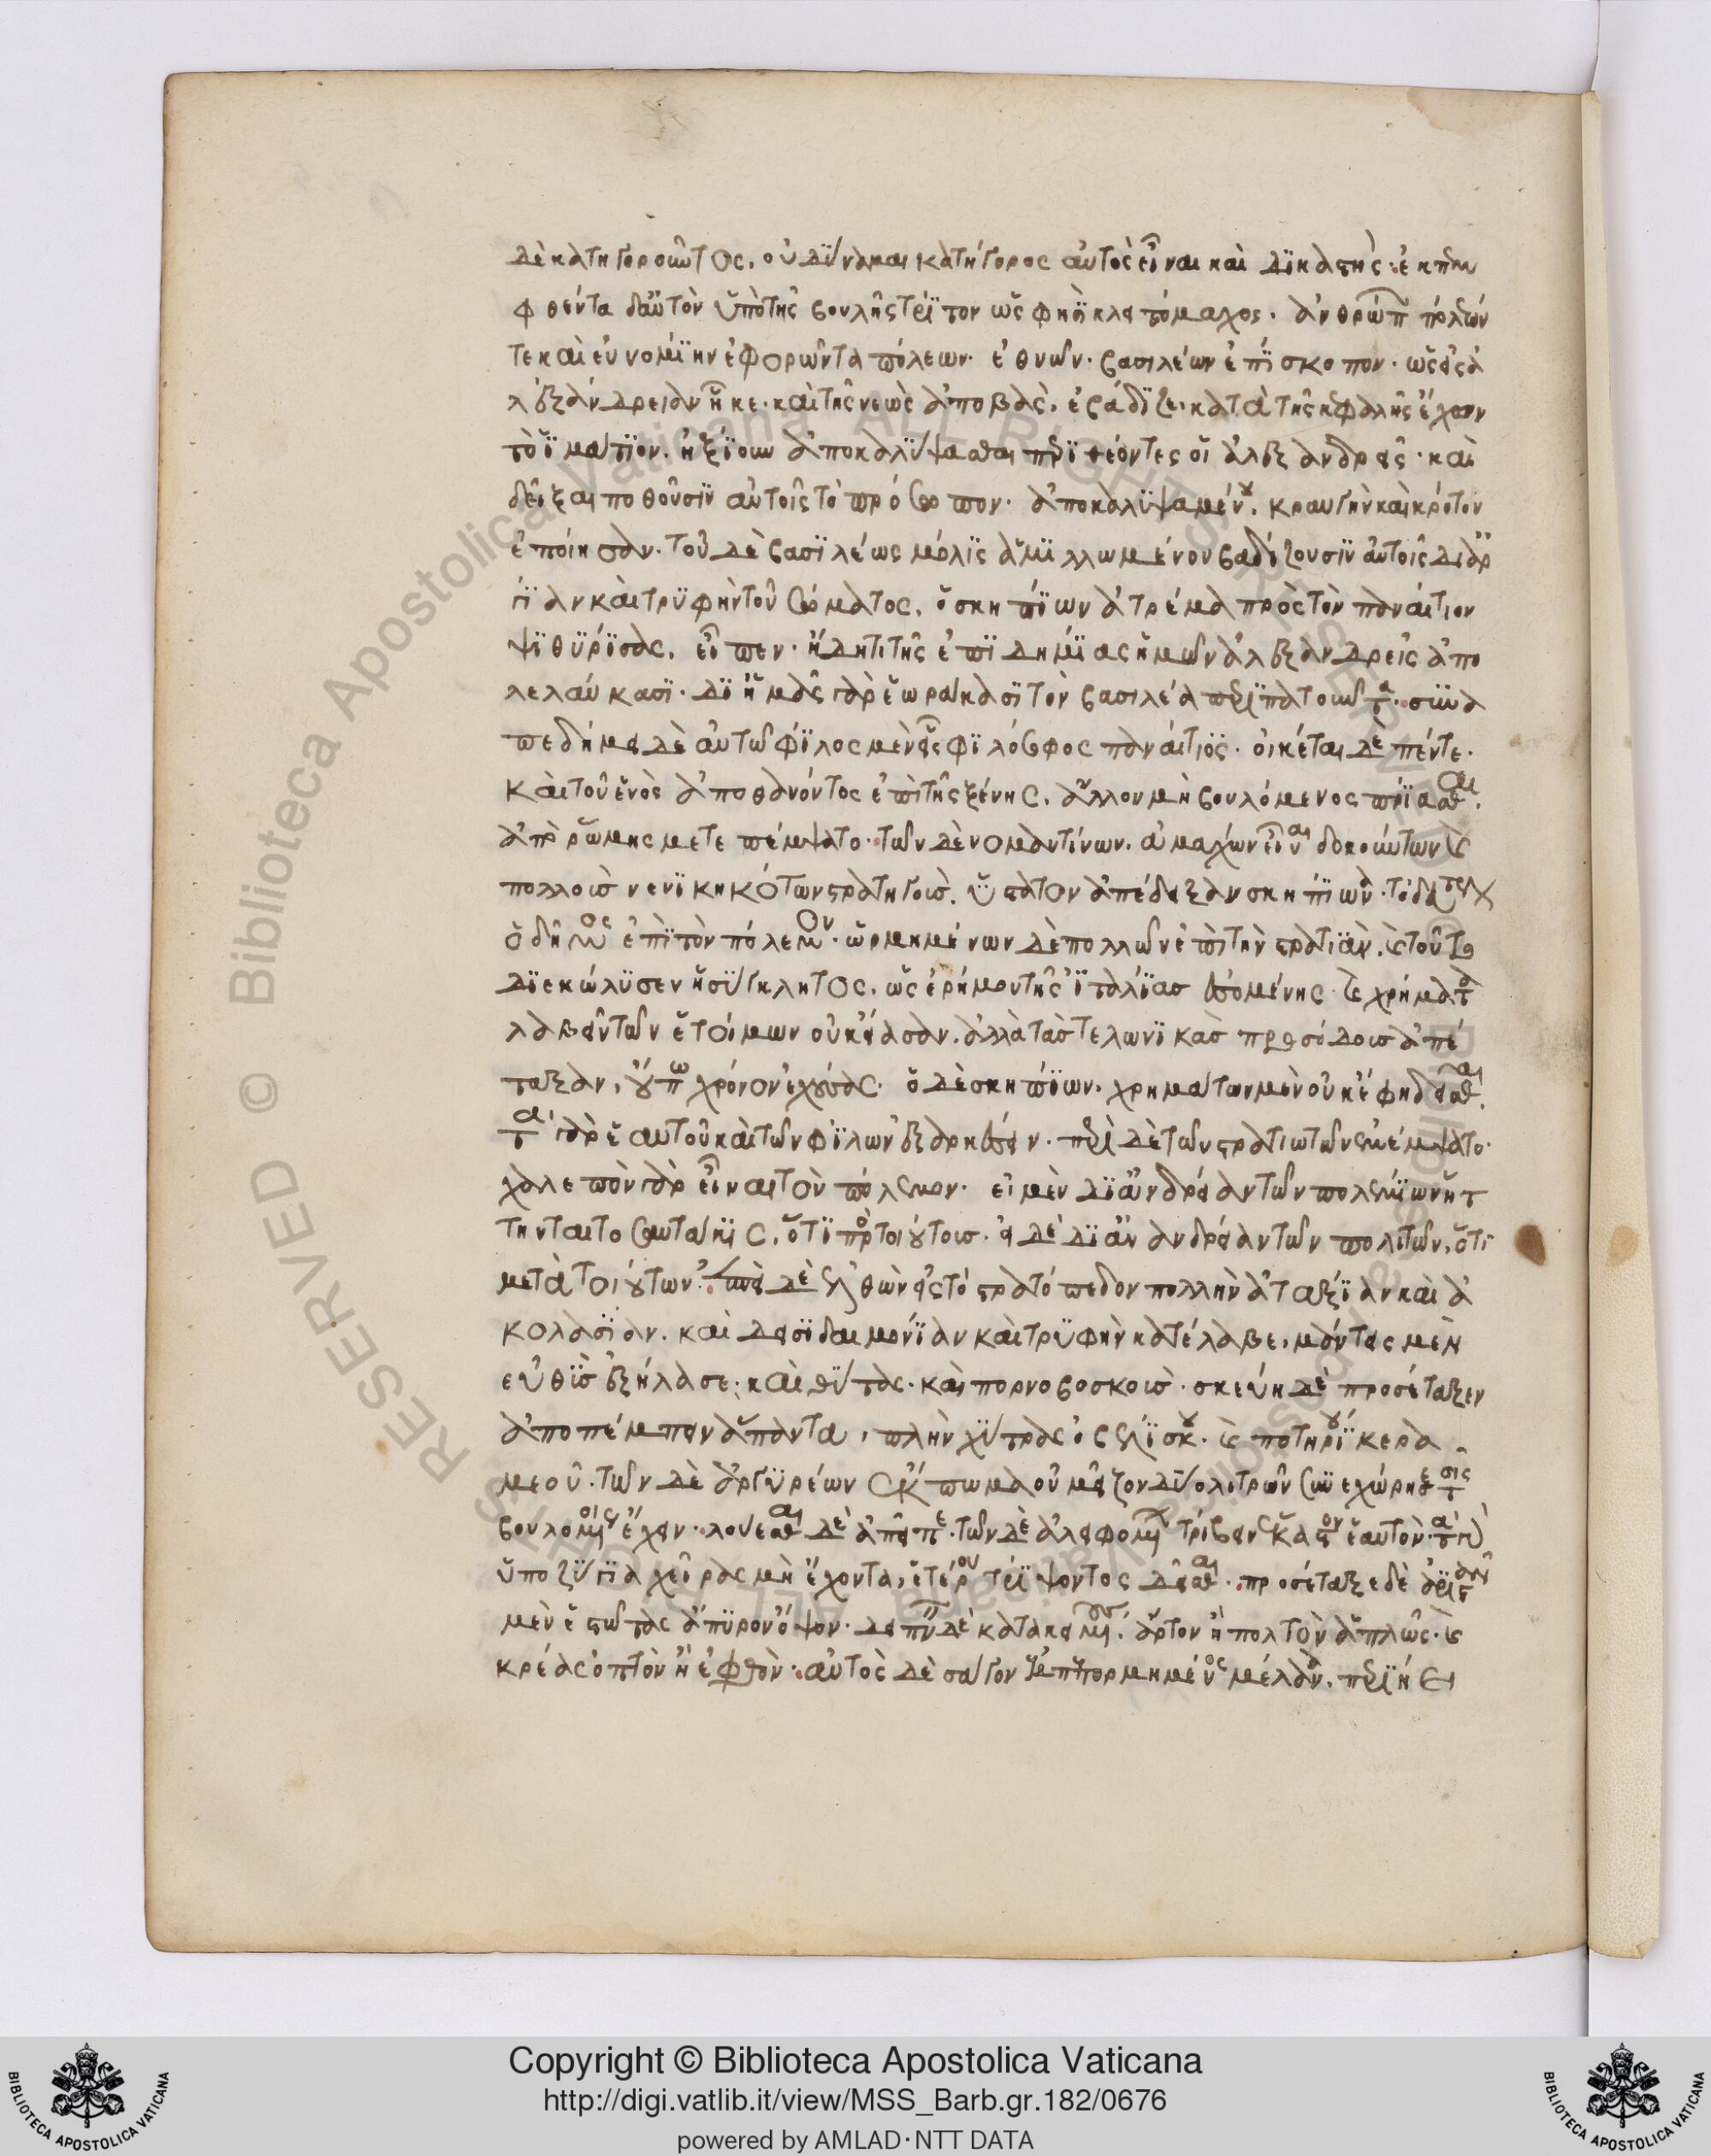 δὲ κατηγοροῦντος, οὐ δύναμαι κατήγορος αὐτὸς εἶναι καὶ δικαστής· ἐκπεμ
φθέντα δ' αὐτὸν ὑπὸ τῆς βουλῆς τρίτον ὥς φησι κλειτόμαχος· ἀνθρώπ
τε καὶ εὐνομίην ἐφορῶντα πόλεων· ἐθνῶν· βασιλέων ἐπίσκοπον· ὡς εἰς ἀ
λεξάνδρειαν ἧκε· καὶ τῆς νεὼς ἀποβὰς, ἐβάδιζε κατὰ τῆς κεφαλῆς ἔχων
τὸ ἱμάτιον, ἠξίουν ἀποκαλύψασθαι περιθέοντες οἱ ἀλεξανδρεῖς· καὶ
δεῖξαι ποθοῦσιν αὐτοῖς τὸ πρόσωπον· ἀποκαλυψαμένου, κραυγὴν καὶ κρότον
ἐποίησαν· τοῦ δὲ βασιλέως μόλις ἁμιλλωμένου βαδίζουσιν αὐτοῖς δι' ἀρ
γίαν καὶ τρυφὴν τοῦ σώματος, ὁ σκηπίων ἀτρέμα πρὸς τὸν παναίτιον
ψιθυρίσας, εἶπεν· ἤδη τι τῆς ἐπιδημίας ἡμῶν ἀλεξανδρεῖς ἀπο
λελαύκασι· δι' ἡμᾶς γὰρ ἑωράκασι τὸν βασιλέα περιπατοῦντα· συνα
πεδήμει δὲ αὐτῶ φίλος μὲν εἷς φιλόσοφος παναίτιος· οἰκέται δὲ πέντε·
καὶ τοῦ ἑνὸς ἀποθανόντος ἐπὶ τῆς ξένης, ἄλλον μὴ βουλόμενος πρίασθαι,
ἀπὸ ῥώμης μετεπέμψατο· τῶν δὲ νομαντίνων, ἀμάχων εἶναι δοκούντων καὶ
πολλοὺς νενικηκότων στρατηγοὺς, ὕπατον ἀπέδειξαν σκηπίωνα· τὸ δεύτερον
ὁ δῆμος ἐπὶ τὸν πόλεμον· ὡρμημένων δὲ πολλῶν ἐπὶ τὴν στρατιὰν, καὶ τοῦτο
διεκώλυσεν ἡ σύγκλητος, ὡς ἐρήμου τῆς ἰταλίας ἐσομένης· καὶ χρήματα
λαβεῖν τῶν ἑτοίμων οὐκ εἴασαν, ἀλλὰ τὰς τελωνικὰς προσόδους ἀπέ
ταξαν, οὔπω χρόνον ἐχούσας· ὁ δὲ σκηπίων, χρημάτων μὲν οὐκ ἔφη δεῖσθαι,
τὰ γὰρ ἑαυτοῦ καὶ τῶν φίλων ἐξαρκέσειν· περὶ δὲ τῶν στρατιωτῶν ἐμέμψατο·
χαλεπὸν γὰρ εἶναι τὸν πόλεμον· εἰ μὲν δι' ἀνδρείαν τῶν πολεμίων ἥτ
τηνται τοσαυτάκις, ὅτι πρὸς τοιούτους· εἰ δὲ δι' ἀνανδρείαν τῶν πολιτῶν, ὅτι
μετὰ τοιούτων· ἐπεὶ δὲ ἐλθὼν εἰς τὸ στρατόπεδον πολλὴν ἀταξίαν καὶ ἀ
κολασίαν, καὶ δεισιδαιμονίαν καὶ τρυφὴν κατέλαβε, μάντεις μὲν
εὐθὺς ἐξήλασε· καὶ θύτας· καὶ πορνοβοσκοὺς· σκεύη δὲ προσέταξεν
ἀποπέμπειν ἅπαντα, πλὴν χύτρας ὀβελίσκου· καὶ ποτηρίου κερα
μεοῦ· τῶν δὲ ἀργυρέων ἔκπωμα οὐ μεῖζον δύο λιτρῶν συνεχώρησε τοῖς
βουλομένοις ἔχειν· λούεσθαι δὲ ἀπεῖπε· τῶν δὲ ἀλειφομένων τρίβειν ἕκαστον ἑαυτὸν· τὰ γὰρ
ὑποζύγια χεῖρας μὴ ἔχοντα, ἑτέρου τρίψοντος δεῖσθαι· προσέταξε δὲ ἀριστᾶν
μὲν ἑστῶτας ἄπυρον ὄψον· δειπνεῖν δὲ κατακειμένους, ἄρτον ἢ πολτὸν ἁπλῶς· καὶ
κρέας ὀπτὸν ἢ ἑφθὸν· αὐτὸς δὲ σάγον ἐμπεπορπημένος μέλανα, περιήει
Copyright © Biblioteca Apostolica Vaticana
http://digi.vatlib.it/view/MSS_Barb.gr.182/0676
powered by AMLAD·NTT DATA